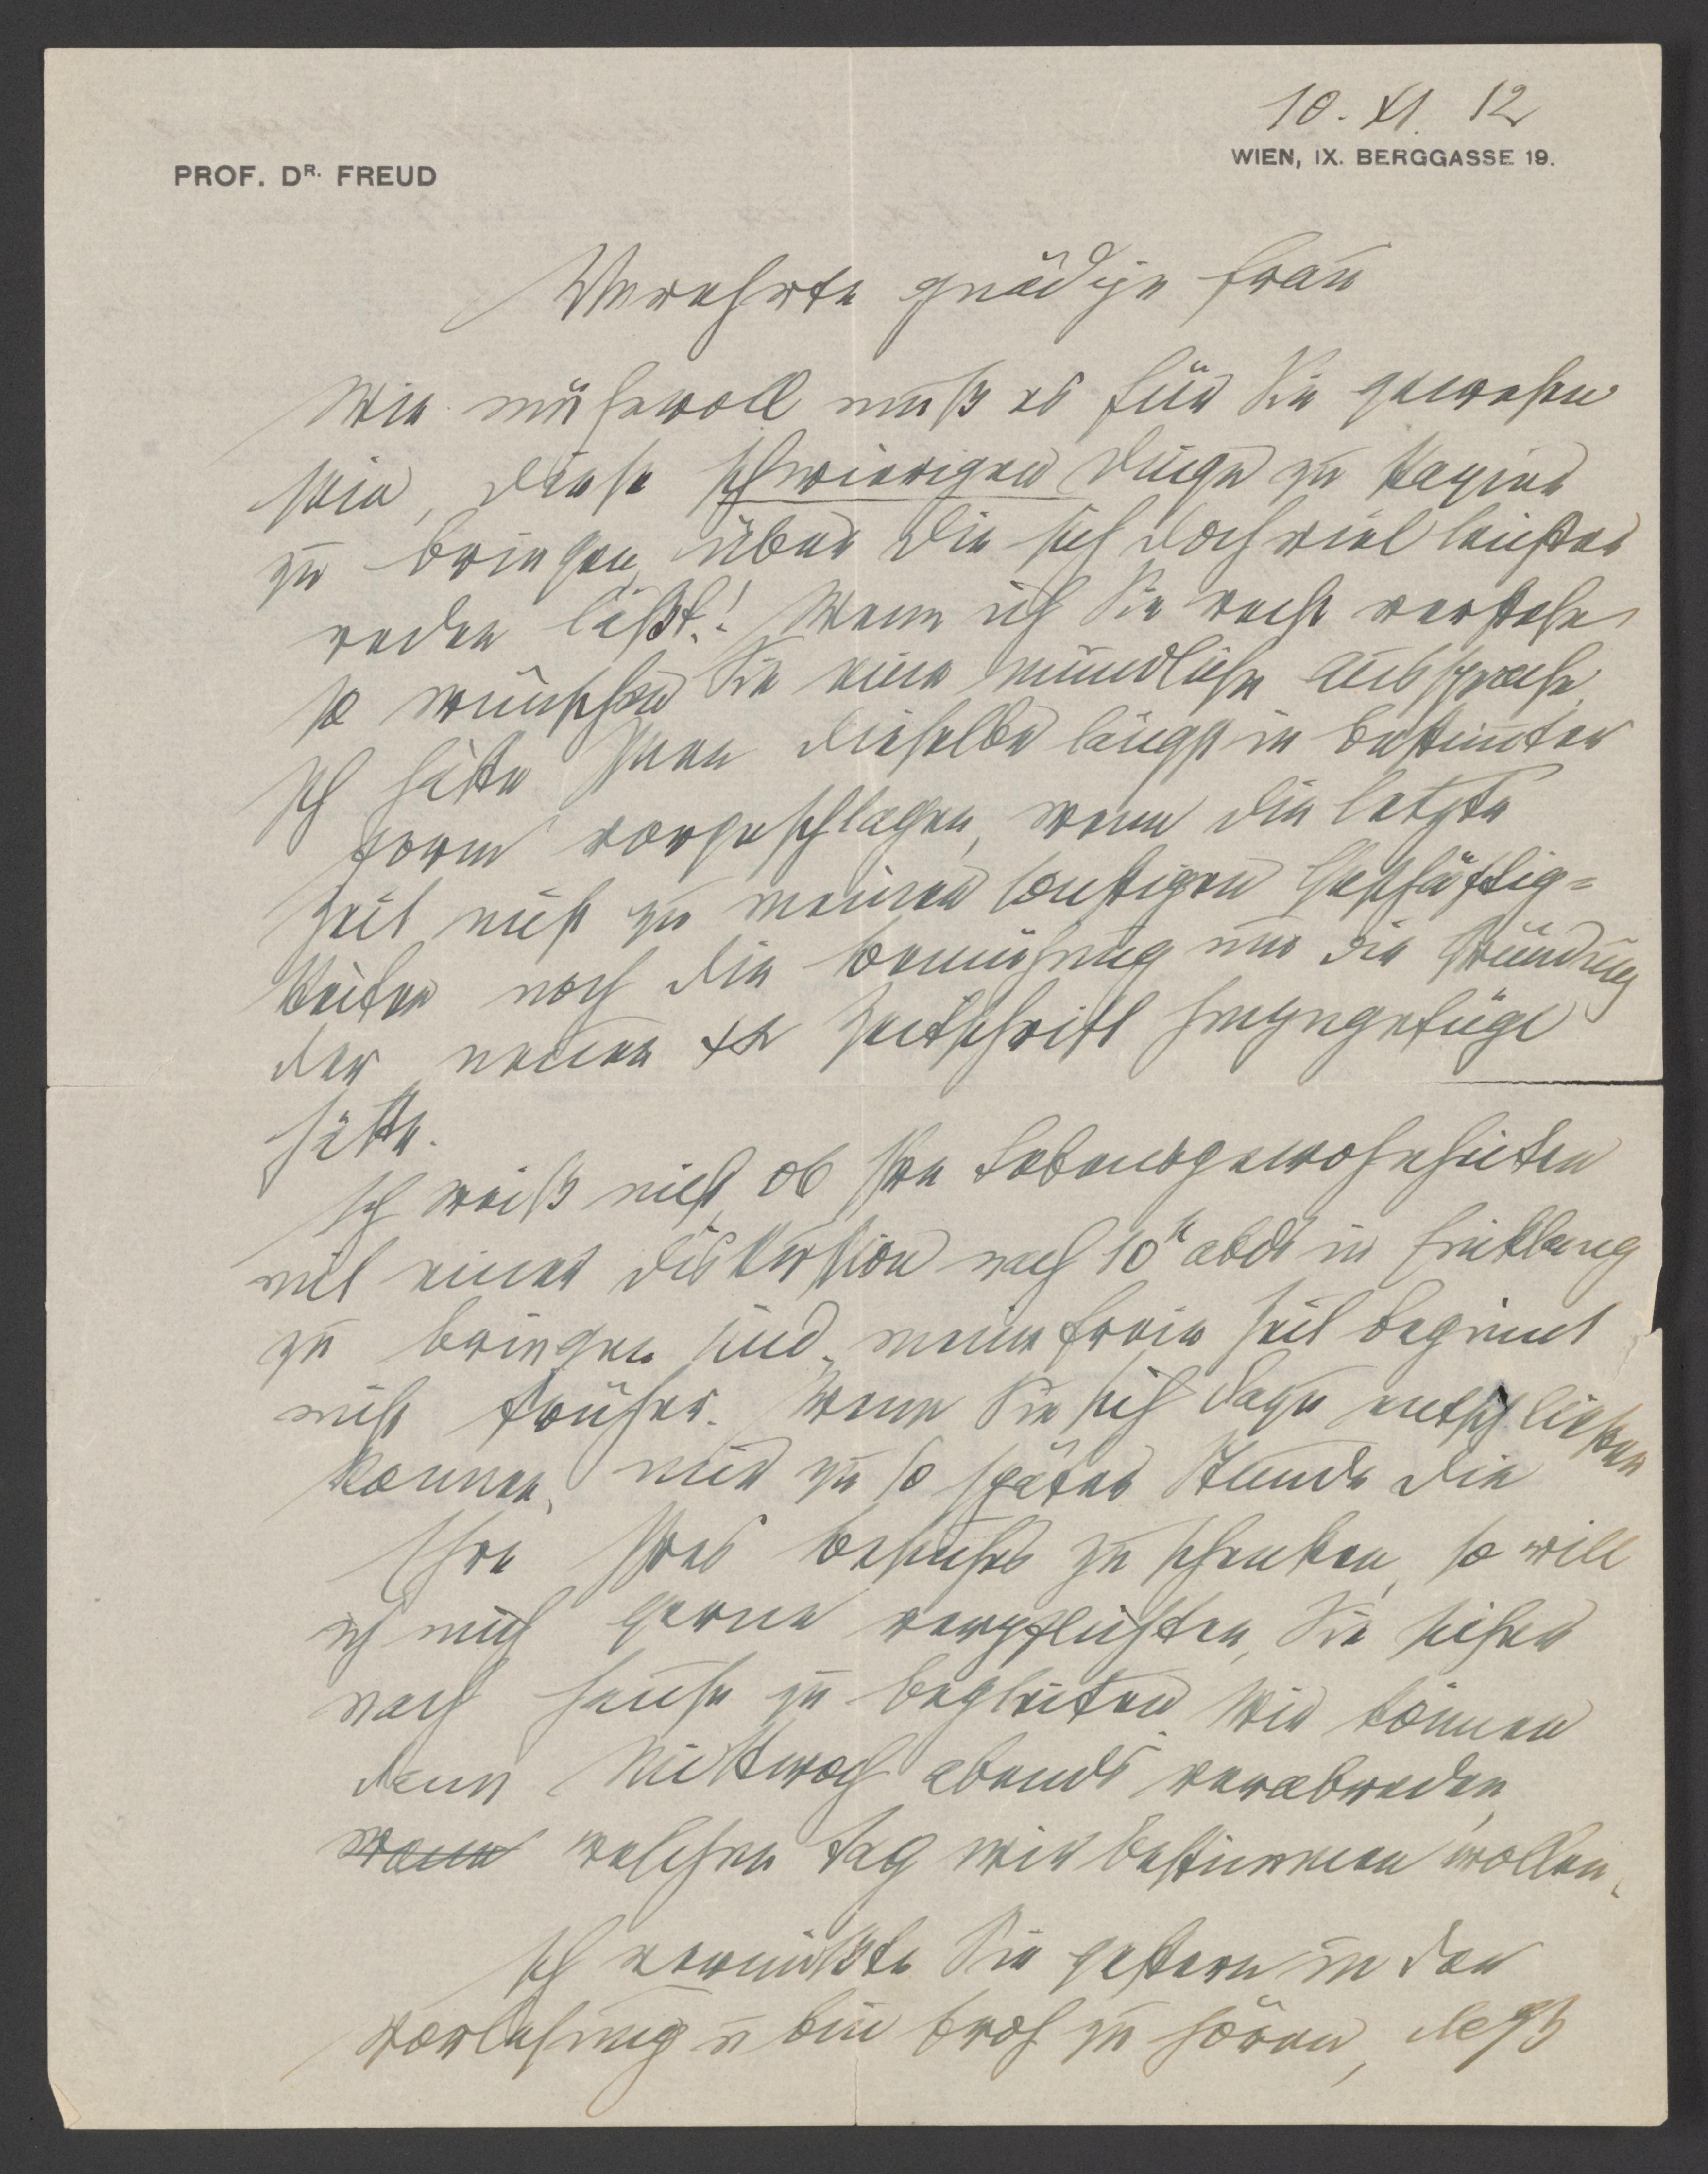 10. XI. 12
PROF. DR. FREUD
WIEN, IX. BERGGASSE 19.
Verehrte gnädige Frau
Wie mühevoll muß es für Sie gewesen
sein, diese schwierigen Dinge zu Papier
zu bringen, über die sich doch viel leichter
reden läßt! Wenn ich Sie recht verstehe,
so wünschen Sie eine mündliche Aussprache.
Ich hätte Ihnen dieselbe längst in bestimter
Form vorgeschlagen, wenn die letzte
Zeit nicht zu meinen sonstigen Geschäftig=
keiten noch die Bemühung um die Gründung
der neuen Zeitschrift hinzugefügt
hätte.
Ich weiß nicht, ob Ihre Lebensgewohnheiten
mit einer Diskussion nach 10h abds in Einklang
zu bringen sind, meine freie Zeit beginnt
nicht früher. Wenn Sie sich dazu entschließen
können, mir zu so später Stunde die
Ehre Ihres Besuches zu schenken, so will
ich mich gerne verpflichten, Sie sicher
nach Hause zu begleiten. Wir können
dann Mittwoch abends verabreden,
wann welchen Tag wir bestimmen wollen.
Ich vermißte Sie gestern in der
Vorlesung u bin froh zu hören, daß